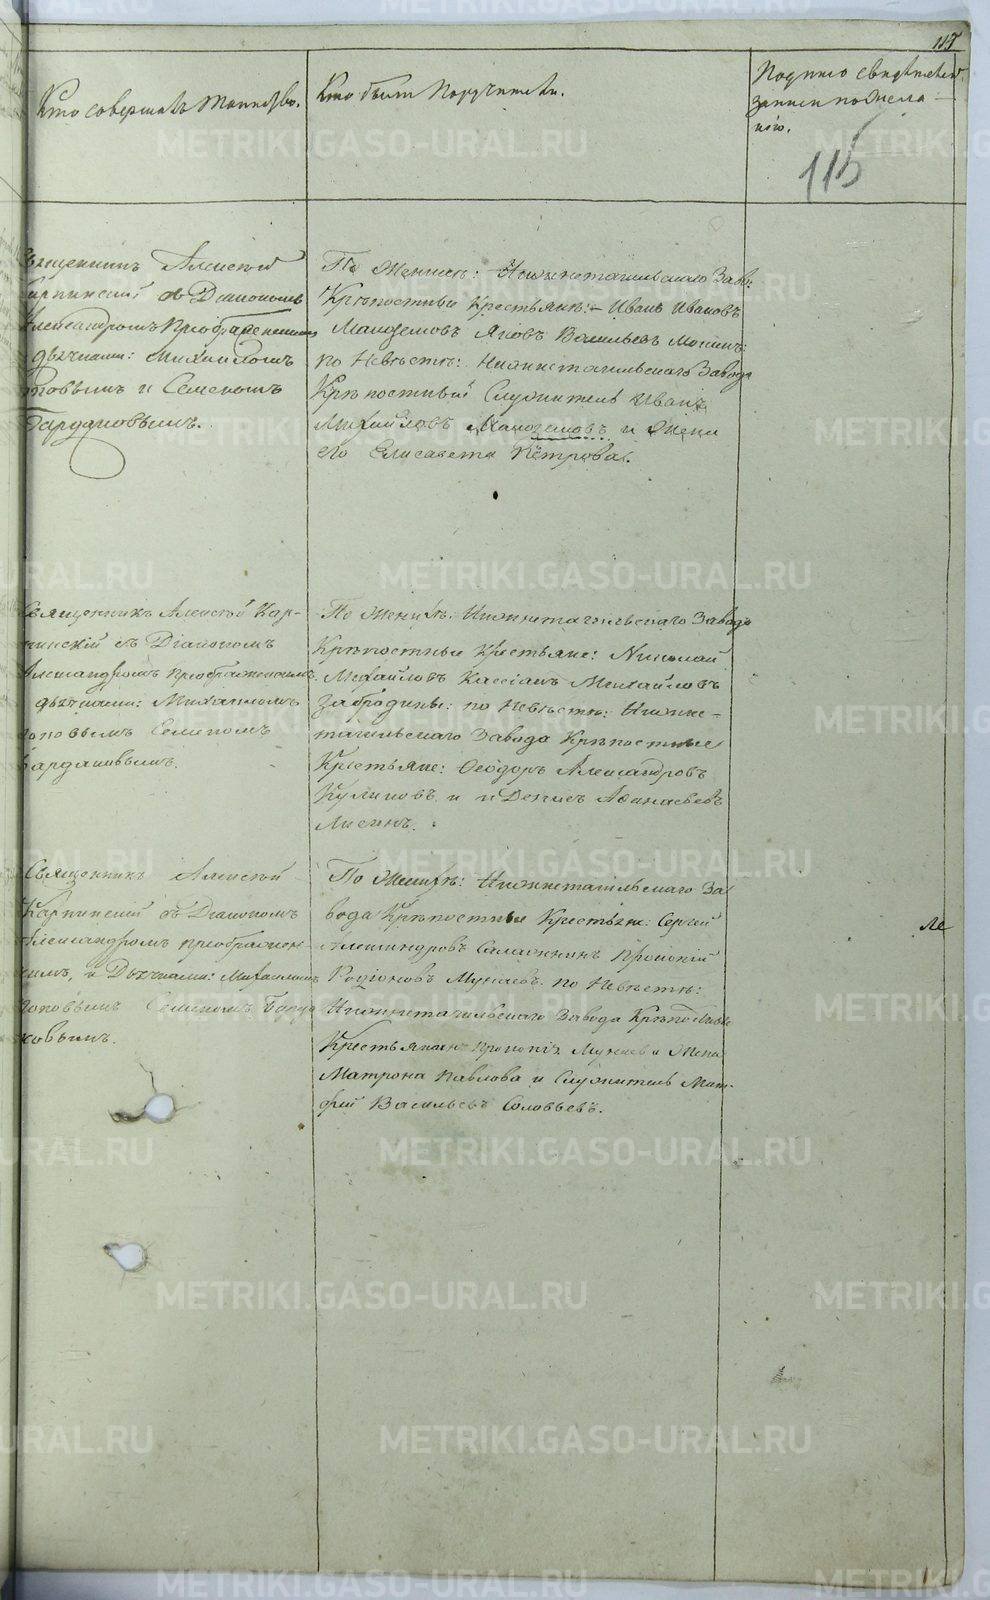 115
Кто совершалъ таинство.
Кто были Поручители.
Подпись свидѣтелей
записи по жела-
нію.
115
Священникъ Алексѣй
Карпинскій съ Діакономъ
Александромъ Преображенскимъ
дьячками: Михаиломъ
Поповымъ и Семеномъ
По Женихѣ: Нижнетагильскаго Заво:
Крѣпостные Крестьяне:- Иванъ Ивановъ
Яковъ Васильевъ
по Невѣстѣ: Нижнетагильскаго Завода
Крѣпостный Служитель Иванъ
Михайловъ и Жена
его Елисавета Петрова.
Священникъ Алексѣй Кар-
пинскій съ Діакономъ
Александромъ Преображенскимъ
дьячками: Михаиломъ
Поповымъ Семеномъ
По Женихѣ: Нижнетагильскаго Завода
Крѣпостные Крестьяне: Николай
Михайловъ Кассіанъ Михайловъ
Забродины: по Невѣстѣ: Нижне-
тагильскаго Завода Крѣпостные
Крестьяне: Ѳеодоръ Александровъ
Куликовъ и и Денисъ Аѳанасьевъ
Лисинъ.
Священникъ Алексѣй
Карпинскій съ Діакономъ
Александромъ преображен-
скимъ, и Дьячками: Михаиломъ
Поповымъ Семеномъ
По Женихѣ: Нижнетагильскаго За
вода Крѣпостные Крестьяне: Сергей
Александровъ Прокопій
Родіоновъ Мунаевъ. по Невѣстѣ:
Нижнетагильскаго Завода Крѣпостный
Крестьянинъ Прокопій Мунаевъ и Жена
Матрона Павлова и Служитель Мат-
фій Васильевъ Соловьевъ.
Ле
METRIKI.GASO-URAL.RU